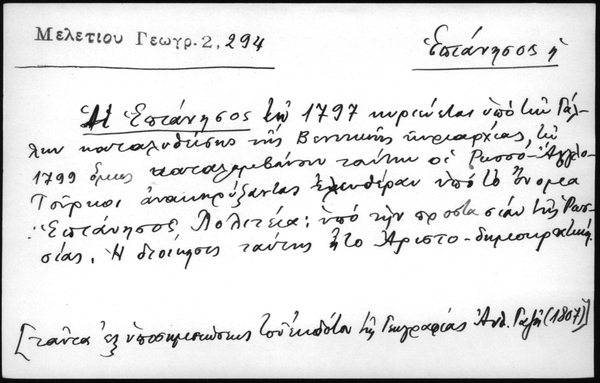 Μελετίου Γεωγρ. 2, 294
Ἑπτάνησος ἡ
Ἡ Ἑπτάνησος τῷ 1797 κυριεύεται ὑπὸ τῶν Γάλ-
λων καταλυθείσης τῆς Βενετικῆς κυριαρχίας, τῷ
1799 ὅμως καταλαμβάνουν ταύτην οἱ Ρωσσο-Ἀγγλο-
Τοῦρκοι ἀνακηρύξαντες ἐλευθέραν ὑπὸ τὸ ὄνομα
Ἑπτάνησος Πολιτεία· ὑπὸ τὴν προστασίαν τῆς Ρωσ-
σίας. Ἡ διοίκησις ταύτης ἦτο Ἀριστο-δημοκρατική.
[ταῦτα ἐξ ὑποσημειώσεως τοῦ ἐκδότου τῆς Γεωγραφίας Ἀνθ. Γαζῆ (1807)]